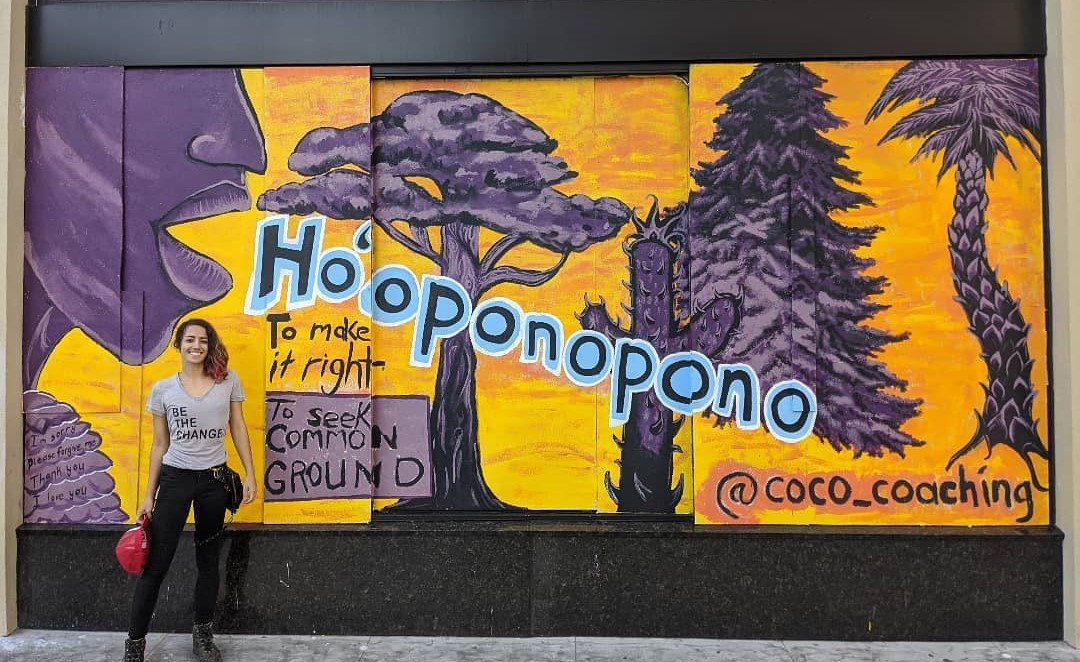 Ho'oponopono
To make
it right
To seek
COMMON
GROUND
I'm sorry
please forgive me
Thank you
I love you
BE
THE
CHANGE
@coco_coaching